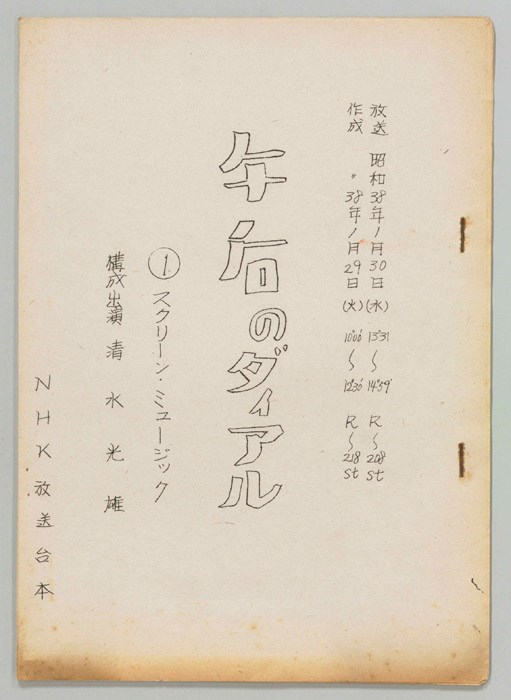 放送 昭和38年1月30日(水) 13°31〜14°59 R〜208st
作成 〃 38年1月29日(火) 10°00〜12°30 R〜218st
午后のダイアル
① スクリーン・ミュージック
構成出演 清水光雄
NHK放送台本